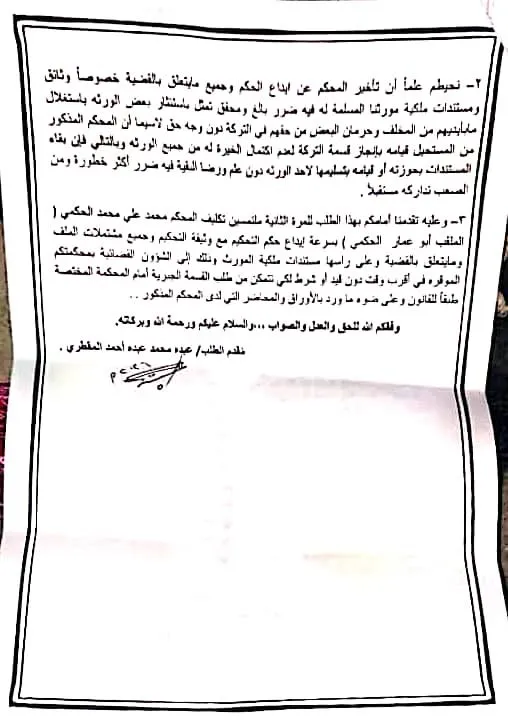 ٢- نحيطم علماً أن تأخير المحكم عن ايداع الحكم وجميع مايتعلق بالقضية خصوصاً وثائق
ومستندات ملكية مورثنا المسلمة له فيه ضرر بالغ ومحقق تمثل باستئثار بعض الورثه باستغلال
مابأيديهم من المخلف وحرمان البعض من حقهم في التركة دون وجه حق لاسيما أن المحكم المذكور
من المستحيل قيامه بإنجاز قسمة التركة لعدم اكتمال الخيرة له من جميع الورثه وبالتالي فإن بقاء
المستندات بحوزته أو قيامه بتسليمها لاحد الورثه دون علم ورضا البقية فيه ضرر أكثر خطورة ومن
الصعب تداركه مستقبلاً .
٣- وعليه تقدمنا أمامكم بهذا الطلب للمرة الثانية ملتمسين تكليف المحكم محمد علي محمد الحكمي (
الملقب أبو عمار الحكمي ) بسرعة إيداع حكم التحكيم مع وثيقة التحكيم وجميع مشتملات الملف
ومايتعلق بالقضية وعلى رأسها مستندات ملكية المورث وذلك إلى الشؤون القضائية بمحكمتكم
الموقره في أقرب وقت دون قيد أو شرط لكي نتمكن من طلب القسمة الجبرية أمام المحكمة المختصة
طبقاً للقانون وعلى ضوء ما ورد بالأوراق والمحاضر التي لدى المحكم المذكور ..
وفقكم الله للحق والعدل والصواب ،،،والسلام عليكم ورحمة الله وبركاته.
مقدم الطلب/ عبده محمد عبده أحمد المقطري .